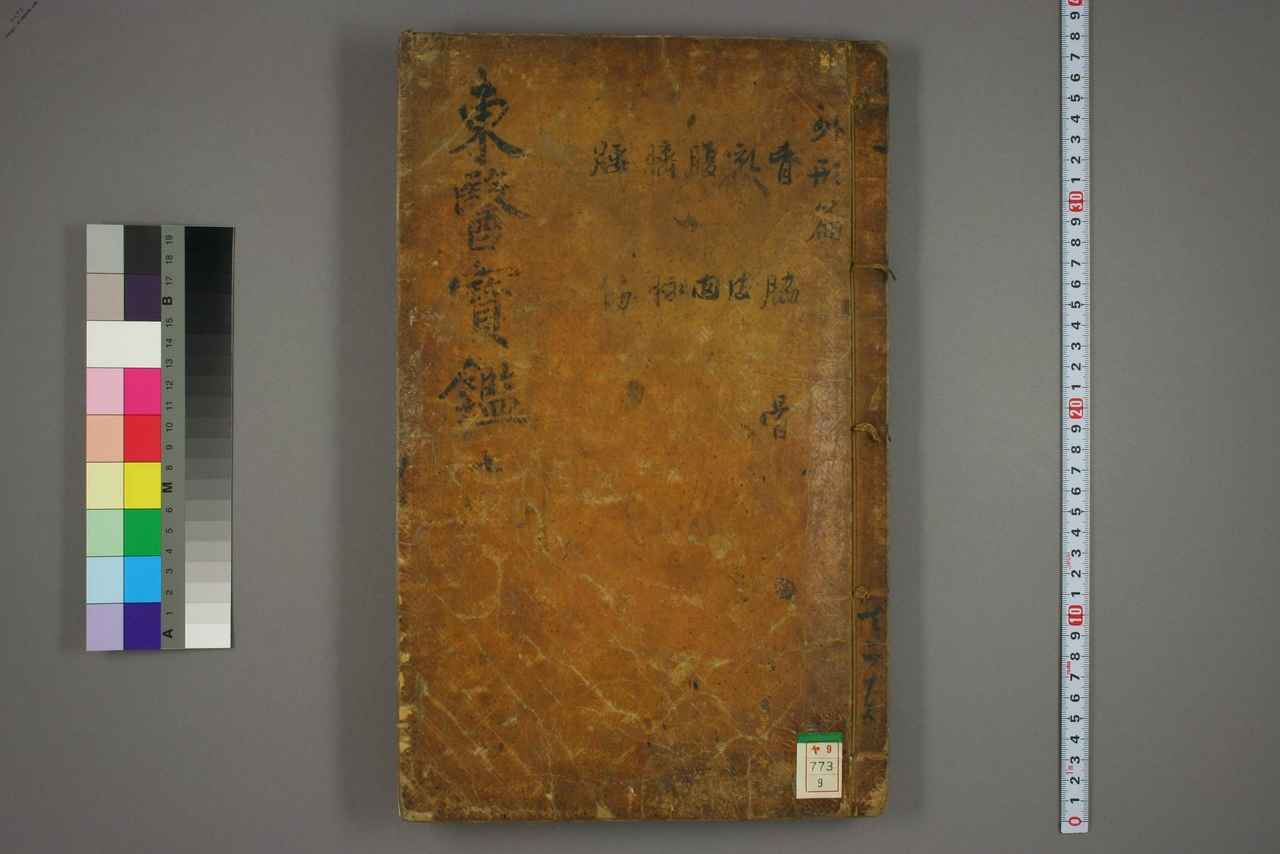 外形篇
胷乳腹臍腰
脇皮肉脉筋
骨
東醫寶鑑
共二十五
ヤ9
773
9
0 1 2 3 4 5 6 7 8 9 10 1 2 3 4 5 6 7 8 9 20 1 2 3 4 5 6 7 8 9 30 1 2 3 4 5 6 7 8 9
A 1 2 3 4 5 6 M 8 9 10 11 12 13 14 15 B 17 18 19